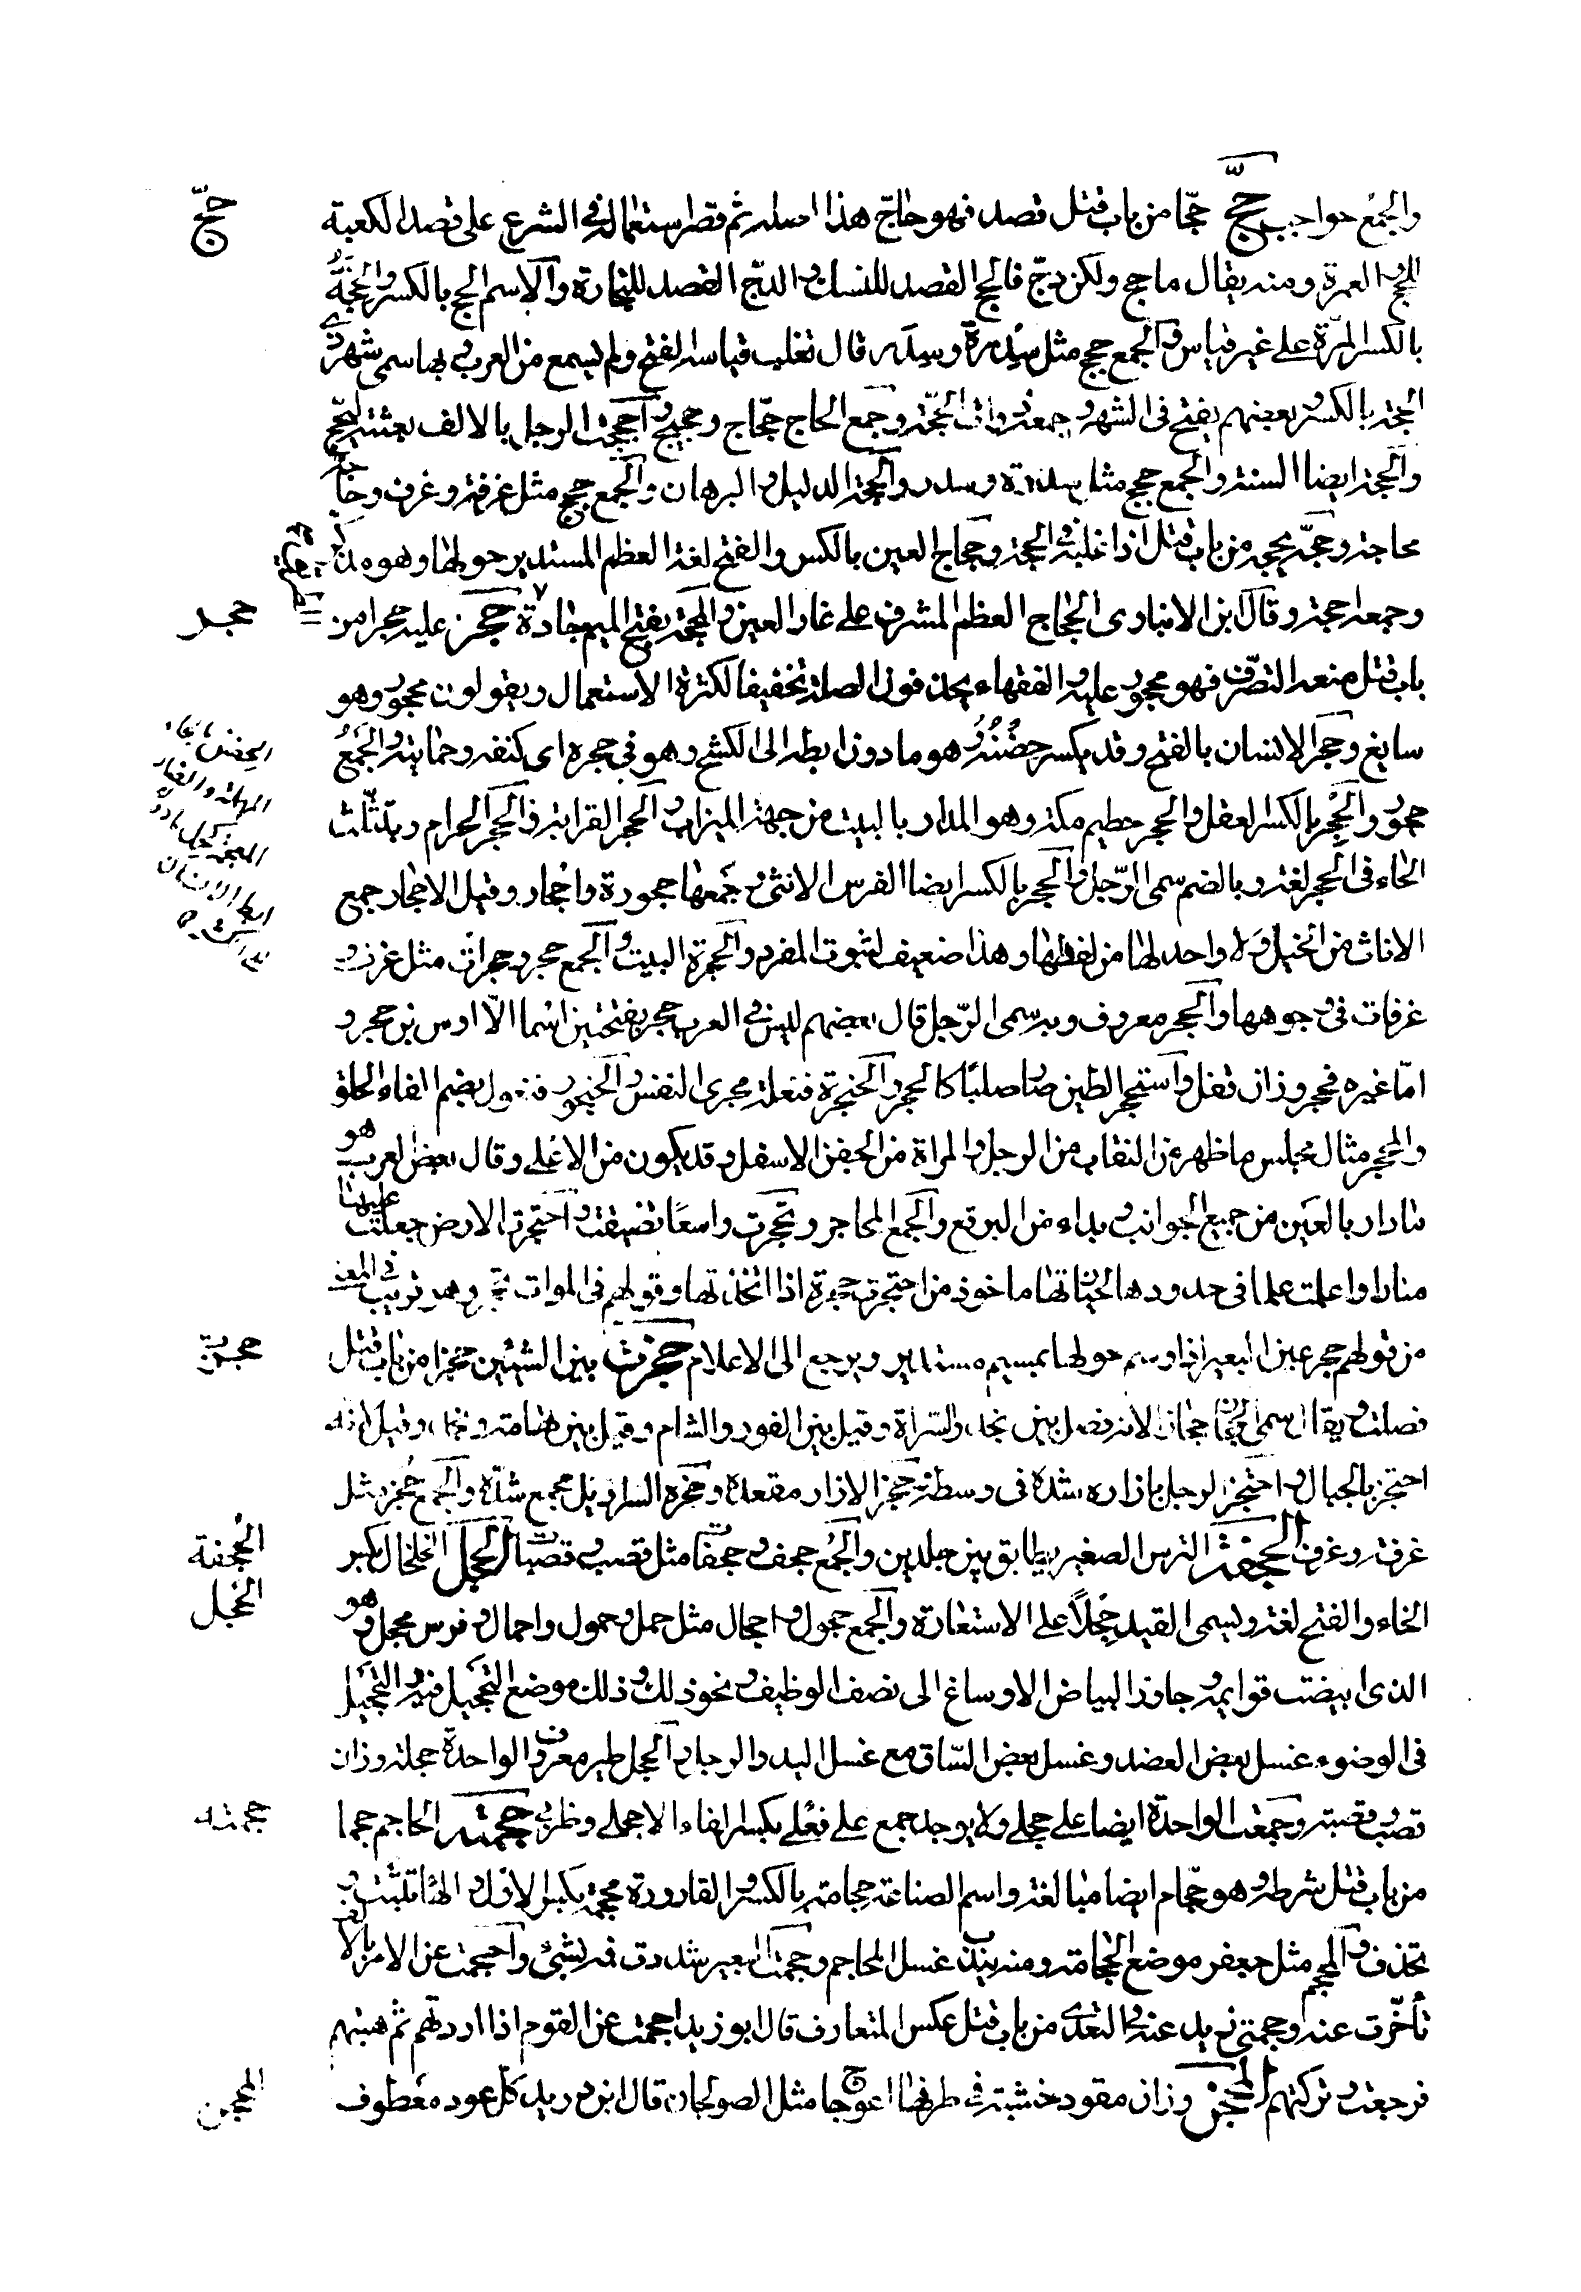 والجمع حواجب حجّ حجّا من باب قتل قصد فهو حاجّ هذا اصله ثم قصر استعماله فى الشرع على قصد الكعبة
للحج والعمرة ومنه يقال ما حج ولكن دجّ فالحج القصد للنسك والدّج القصد للتجارة والاسم الحج بالكسر والحجّة
بالكسر المرّة على غير قياس والجمع حجج مثل سِدرة وسِدَر قال ثعلب قياسه الفتح ولم يسمع من العرب وبها سمى شهر ذى
الحجة بالكسر وبعضهم يفتح فى الشهر وجمعه ذوات الحجّة وجمع الحاج حجّاج وحجيج واحججت الرجل بالالف بعثته ليحجّ
والحجة ايضا السنة والجمع حجج مثل سدرة وسدر والحجة الدليل والبرهان والجمع حجج مثل غرفة وغرف وحاجّه
محاجة وحجّه يحجه من باب قتل اذا غلبه فى الحجة وحجاج العين بالكسر والفتح لغة العظم المستدير حولها وهو مذكر
وجمعه احجة وقال ابن الانبارى الحجاج العظم المشرف على غار العين والمحجة بفتح الميم جادة حجر عليه حجرا من
باب قتل منعه التصرّف فهو محجور عليه والفقهاء يحذفون الصلة تخفيفا لكثرة الاستعمال ويقولون محجور وهو
سايغ وحجر الانسان بالفتح وقد يكسر حِضْنُهُ هو ما دون ابطه الى الكشح وهو فى حجره اى كنفه وحمايته والجَمعُ
حجور والحِجر بالكسر العقل والحجر حطيم مكة وهو المدار بالبيت من جهة الميزاب والحجر القرابة والحجر الحرام وبتثليث
الحاء فى الحجر لغة وبالضم سمى الرّجل والحجر بالكسر ايضا الفرس الانثى وجمعها حجورة واحجار وقيل الاحجار جمع
الاناث من الخيل ولا واحد لها من لفظها وهذا ضعيف لثبوت المفرد والحجرة البيت والجمع حجر وحجرات مثل غرف و
غرفات فى وجوهها والحجر معروف وبه سمى الرّجل قال بعضهم ليس فى العرب حجر بفتحتين اسما الّا اوس بن حجر و
امّا غيره فحجر وزان قفل واستحجر الطين صار صلبًا كالحجر والحنجرة فنعلة مجرى النفس والحنجور فنعول بضم الفاء الحلق
والمحجر مثال مجلس ما ظهر من النقاب من الرجل والمراة من الجفن الاسفل وقد يكون من الاعلى وقال بعض العرب هو
مادار بالعين من جميع الجوانب وبداء من البرقع والجمع المحاجر وتحجرت واسعًا ضيقت واحتجرت الارض جعلت عليها
منارا واعلمت علما فى حدودها لحيازتها ماخوذ من احتجرت حجرة اذا اتخذتها وقولهم فى الموات تحجر وهو قريب فى المعنى
من قولهم حجر عين البعير اذا وسم حولها بميسم مستدير ويرجع الى الاعلام حجزت بين الشيئين حجزا من باب قتل
فصلت ويقال سمى الحجاز حجازا لانه فصل بين نجد والسّراة وقيل بين الغور والشام وقيل بين تهامة ونجد وقيل لانه
احتجز بالجبال واحتجز الرجل بازاره شده فى وسطه وحجزة الازار مقعده وحجزه السراويل مجمع شدّه والجمع حُجز مثل
غرفة وغرف الحجفة الترس الصغير يطابق بين جلدين والجمع حجف وحجفات مثل قصب وقصبات الحجل الخلخال بكسر
الحاء والفتح لغة ويسمى القيد حِجلًا على الاستعارة والجمع حجول واحجال مثل حمل وحمول واحمال وفرس محجل وهو
الذى ابيضت قوايمه وجاوز البياض الاوساغ الى نصف الوظيف ونحو ذلك وذلك موضع التحجيل فيه والتحجيل
فى الوضوء غسل بعض العضد وغسل بعض السّاق مع غسل اليد والرجل والحجل طير معروف الواحدة حجلة وزان
قصب وقصبة وجمعت الواحدة ايضا على حجلى ولا يوجد جمع على فعلى بكسر الفاء الا حجلى وظربى حجمه الحاجم حجما
من باب قتل شرطه وهو حجّام ايضا مبالغة واسم الصناعة حجامة بالكسر والقارورة محجمة بكسر الاول والهاء تثبت و
تحذف والمحجم مثل جعفر موضع الحجامة ومنه يندب غسل المحاجم وحجمت البعير شددت فمه بشئ واحجمت عن الامر بالالف
تأخّرت عنه وحجمنى زيد عنه فى التعدى من باب قتل عكس المتعارف قال ابو زيد احجمت عن القوم اذا اردتهم ثم هبتهم
فرجعت وتركتهم المحجن وزان مقود خشبة فى طرفها اعوجاج مثل الصولجان قال ابن دريد كلّ عود معطوف
حجّ
حجر
حجزت
الحجفة
الحجل
حجمه
المحجن